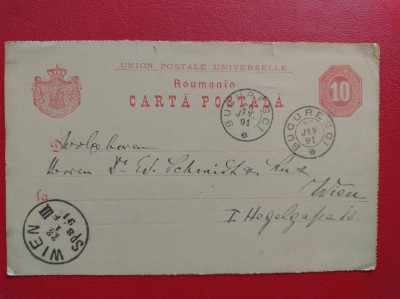 UNION POSTALE UNIVERSELLE
Roumanie
CARTĂ POSTALĂ
10
BUCURESCI
JAN
91
BUCURESCI
JAN
91
Herren Dr. Ed. Schmidt
Wien
I. Hegelgasse
WIEN
91